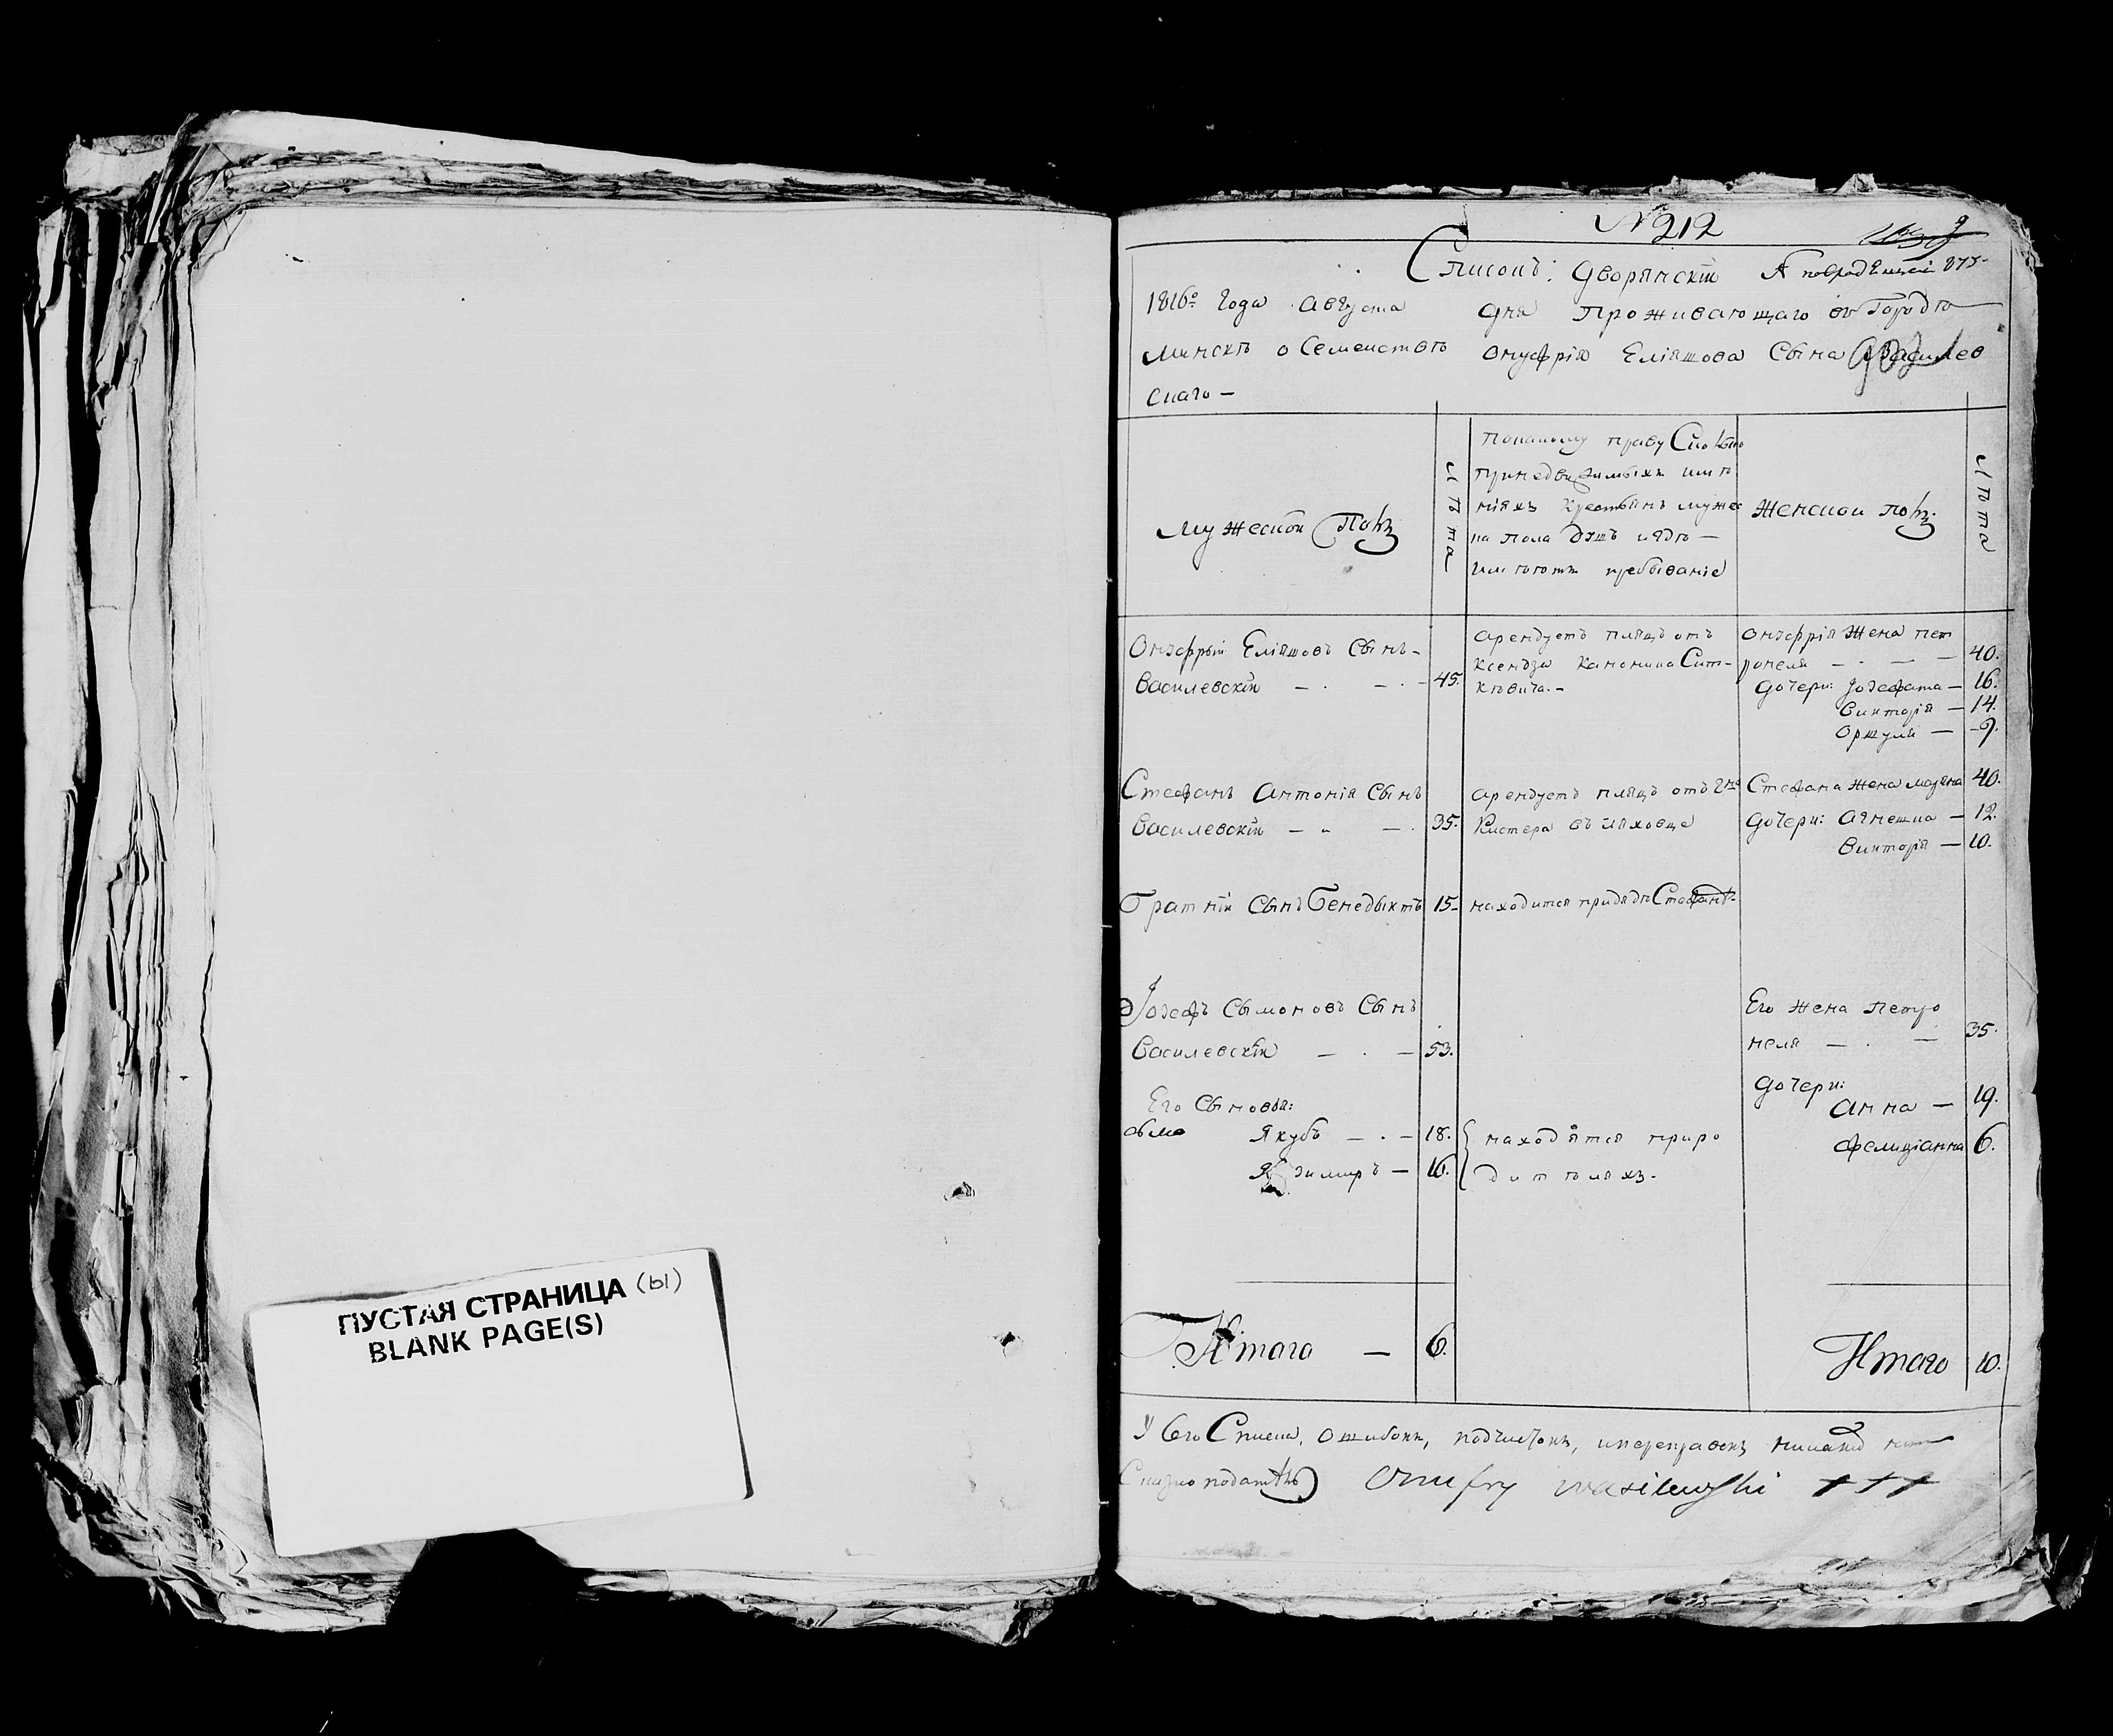 ПУСТАЯ СТРАНИЦА (ы)
BLANK PAGE(S)
N 212
Списокъ: Дворянскiй
1816го Года Августа дня Проживающаго въ Городѣ
Минскѣ о Семействѣ Онуфрiя Елiяшова Сына Василев
скаго —
Мужескои Полъ
Лѣта
по какому праву
при недвижимыхъ имѣ
нiяхъ крестьянъ мужес
ка пола душъ и где —
имѣютъ пребыванiе
Женскои полъ.
Лѣта
Онуфрый Елiяшовъ Сынъ —
Василевскiй — . — . — 45.
арендуетъ пляцъ отъ
ксендза каноника Сит-
кѣвича. —
Онуфрiя Жена пет
ронеля — . — — 40.
дочери: Јозефата — 16.
Викторiя — 14.
Оршуля — 9.
Стефанъ Антонiя Сынъ
Василевскiй — „ — . 35.
арендуетъ пляцъ отъ Гна
Кистера въ ляховце
Стефана Жена марiяна 40.
дочери: Агнешка — 12.
Викторiя — 10.
Братнiй Сынъ Бенедыктъ 15.
находится при дяде Стефане.
Јозефъ Сымоновъ Сынъ
Василевскiй — . — 53.
Его Жена Петро
неля — . — 35.
Его Сыновья:
Якубъ — . — 18.
Казимиръ — 16.
находятся при ро
дителяхъ.
дочери:
Анна — 19.
Фелицiанна 6.
Итого — 6.
Итого 10.
У сего Списка, ошибокъ, подчистокъ, и переправокъ никакихъ нет
Сказкоподатель Onufry Wasilewski +++